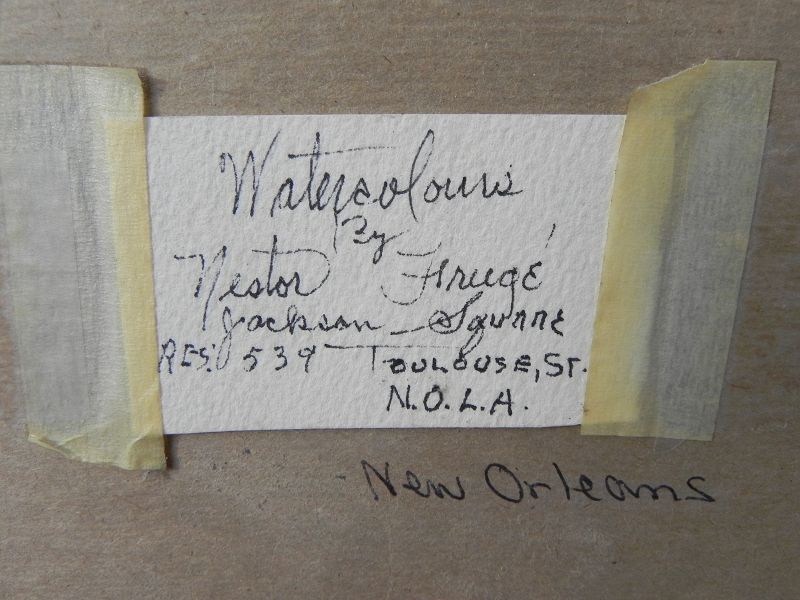 Watercolours
By
Nestor Frugé
Jackson Square
RES. 539 TOULOUSE, ST.
N.O.L.A.
New Orleans